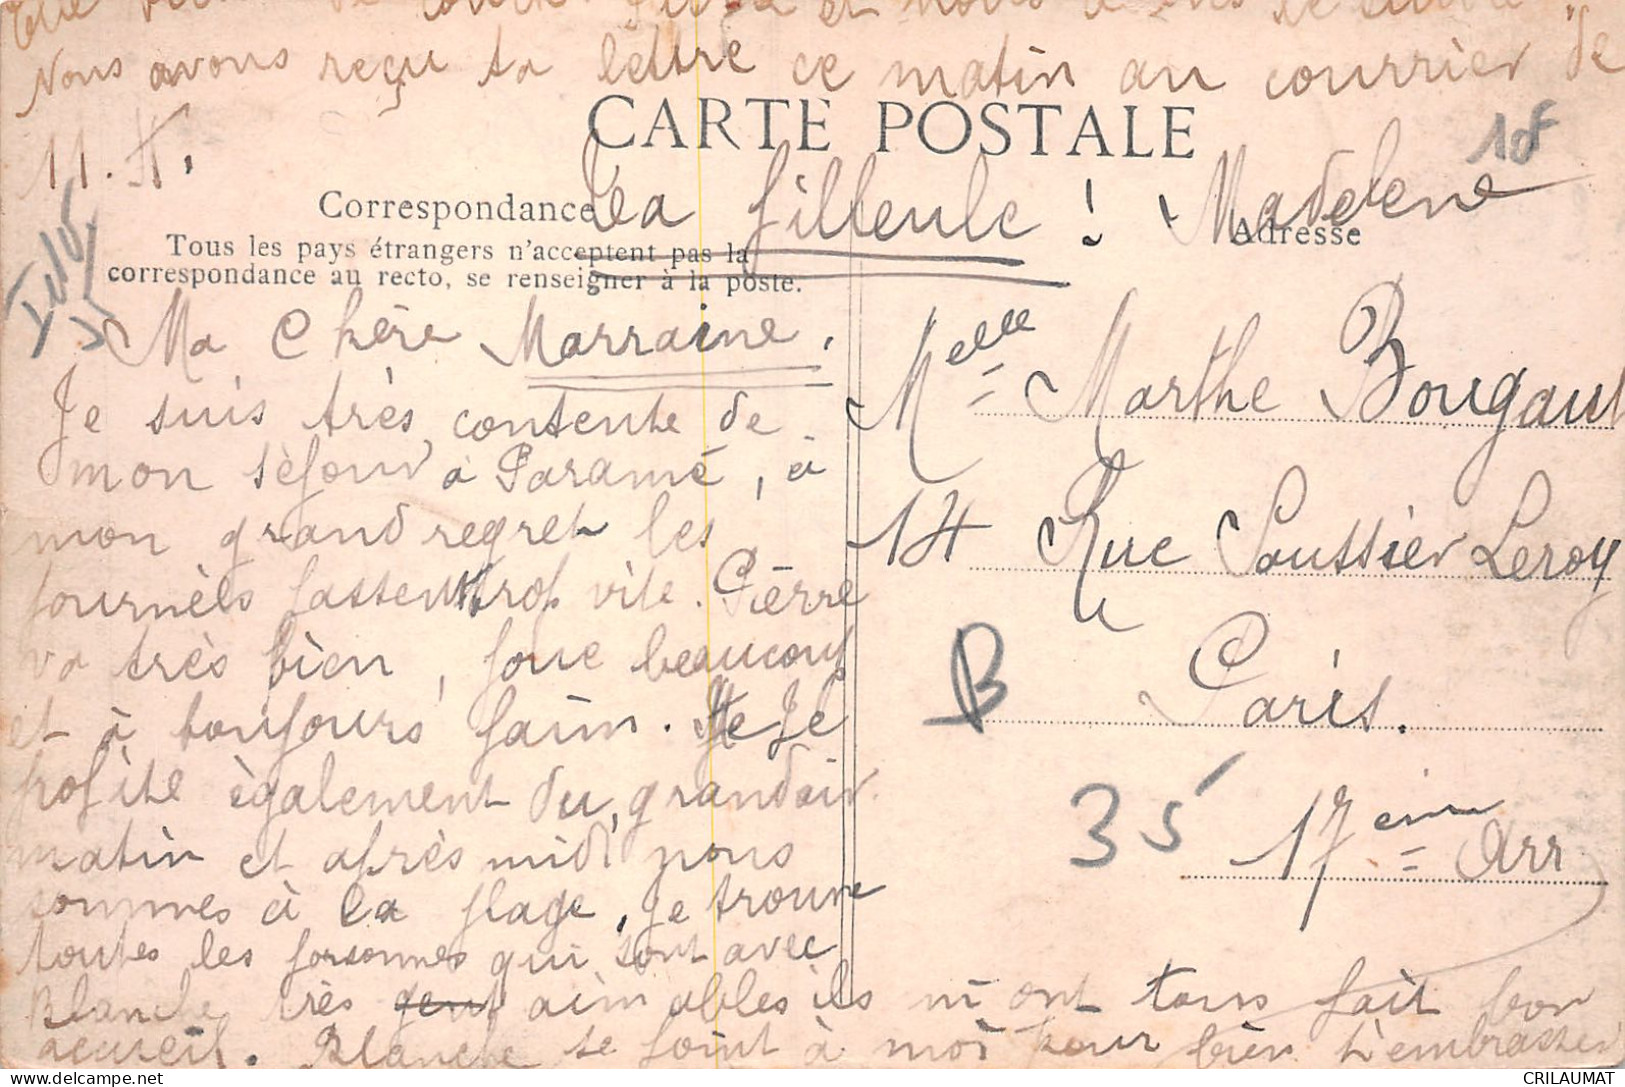 Nous avons reçu ta lettre ce matin au courrier de
11. H.
CARTE POSTALE
Correspondance
Ta filleule ! Madelene
Adresse
Tous les pays étrangers n'acceptent pas la
correspondance au recto, se renseigner à la poste.
Ma Chère Marraine,
Je suis très contente de
mon séjour à Paramé, à
mon grand regret les
journèes passent trop vite. Pierre
va très bien, joue beaucoup
et à toujours faim. Je
profite ègalement du grand air
matin et après midi nous
sommes à la plage, je trouve
toutes les personnes qui sont avec
Blanche très aimables ils m'ont tous fait bon
accueil. Blanche se joint à moi pour bien t'embrasser
Melle Marthe Bougault
14 Rue Saussier Leroy
Paris.
17eme Arr
B
35
18